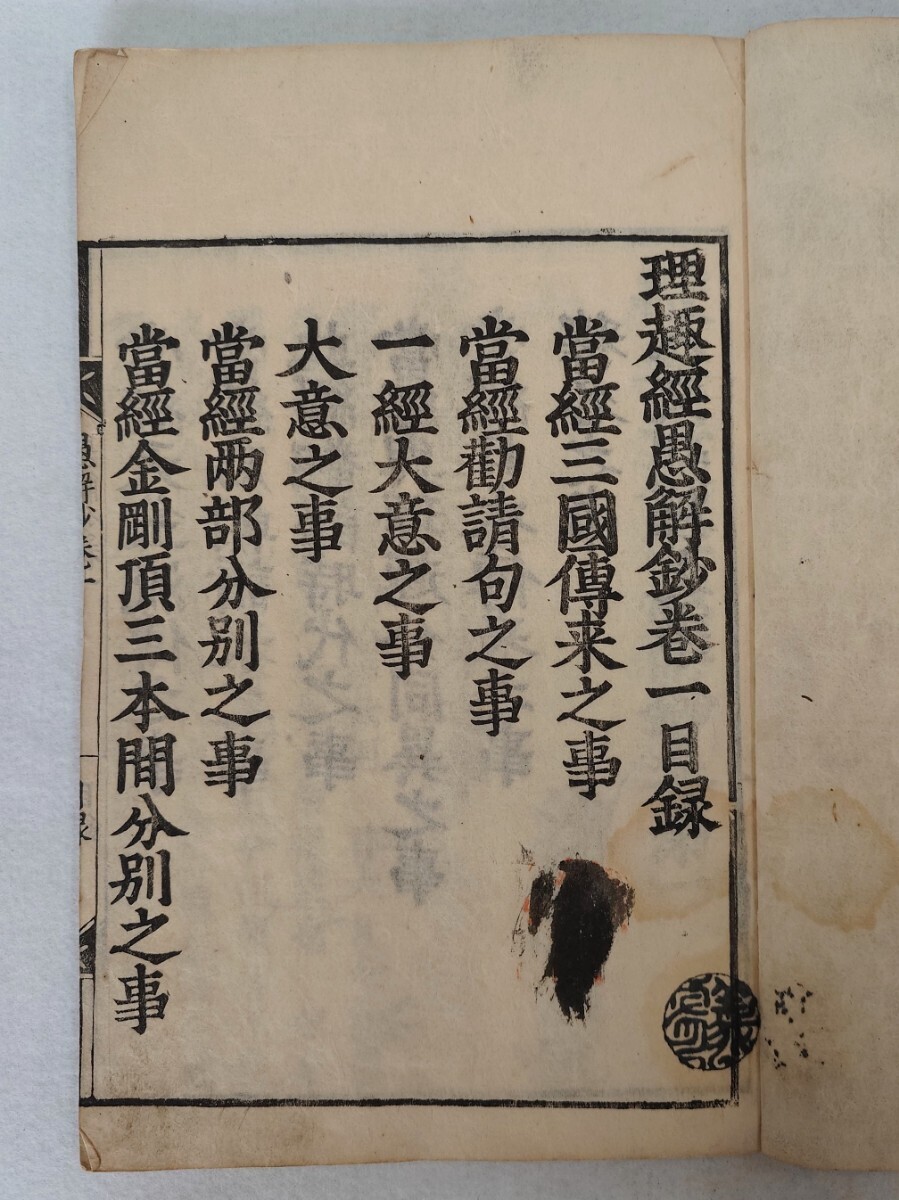 理趣經愚解鈔巻一目録
當經三國傳来之事
當經勸請句之事
一經大意之事
大意之事
當經兩部分別之事
當經金剛頂三本間分別之事
愚解鈔巻一
目録